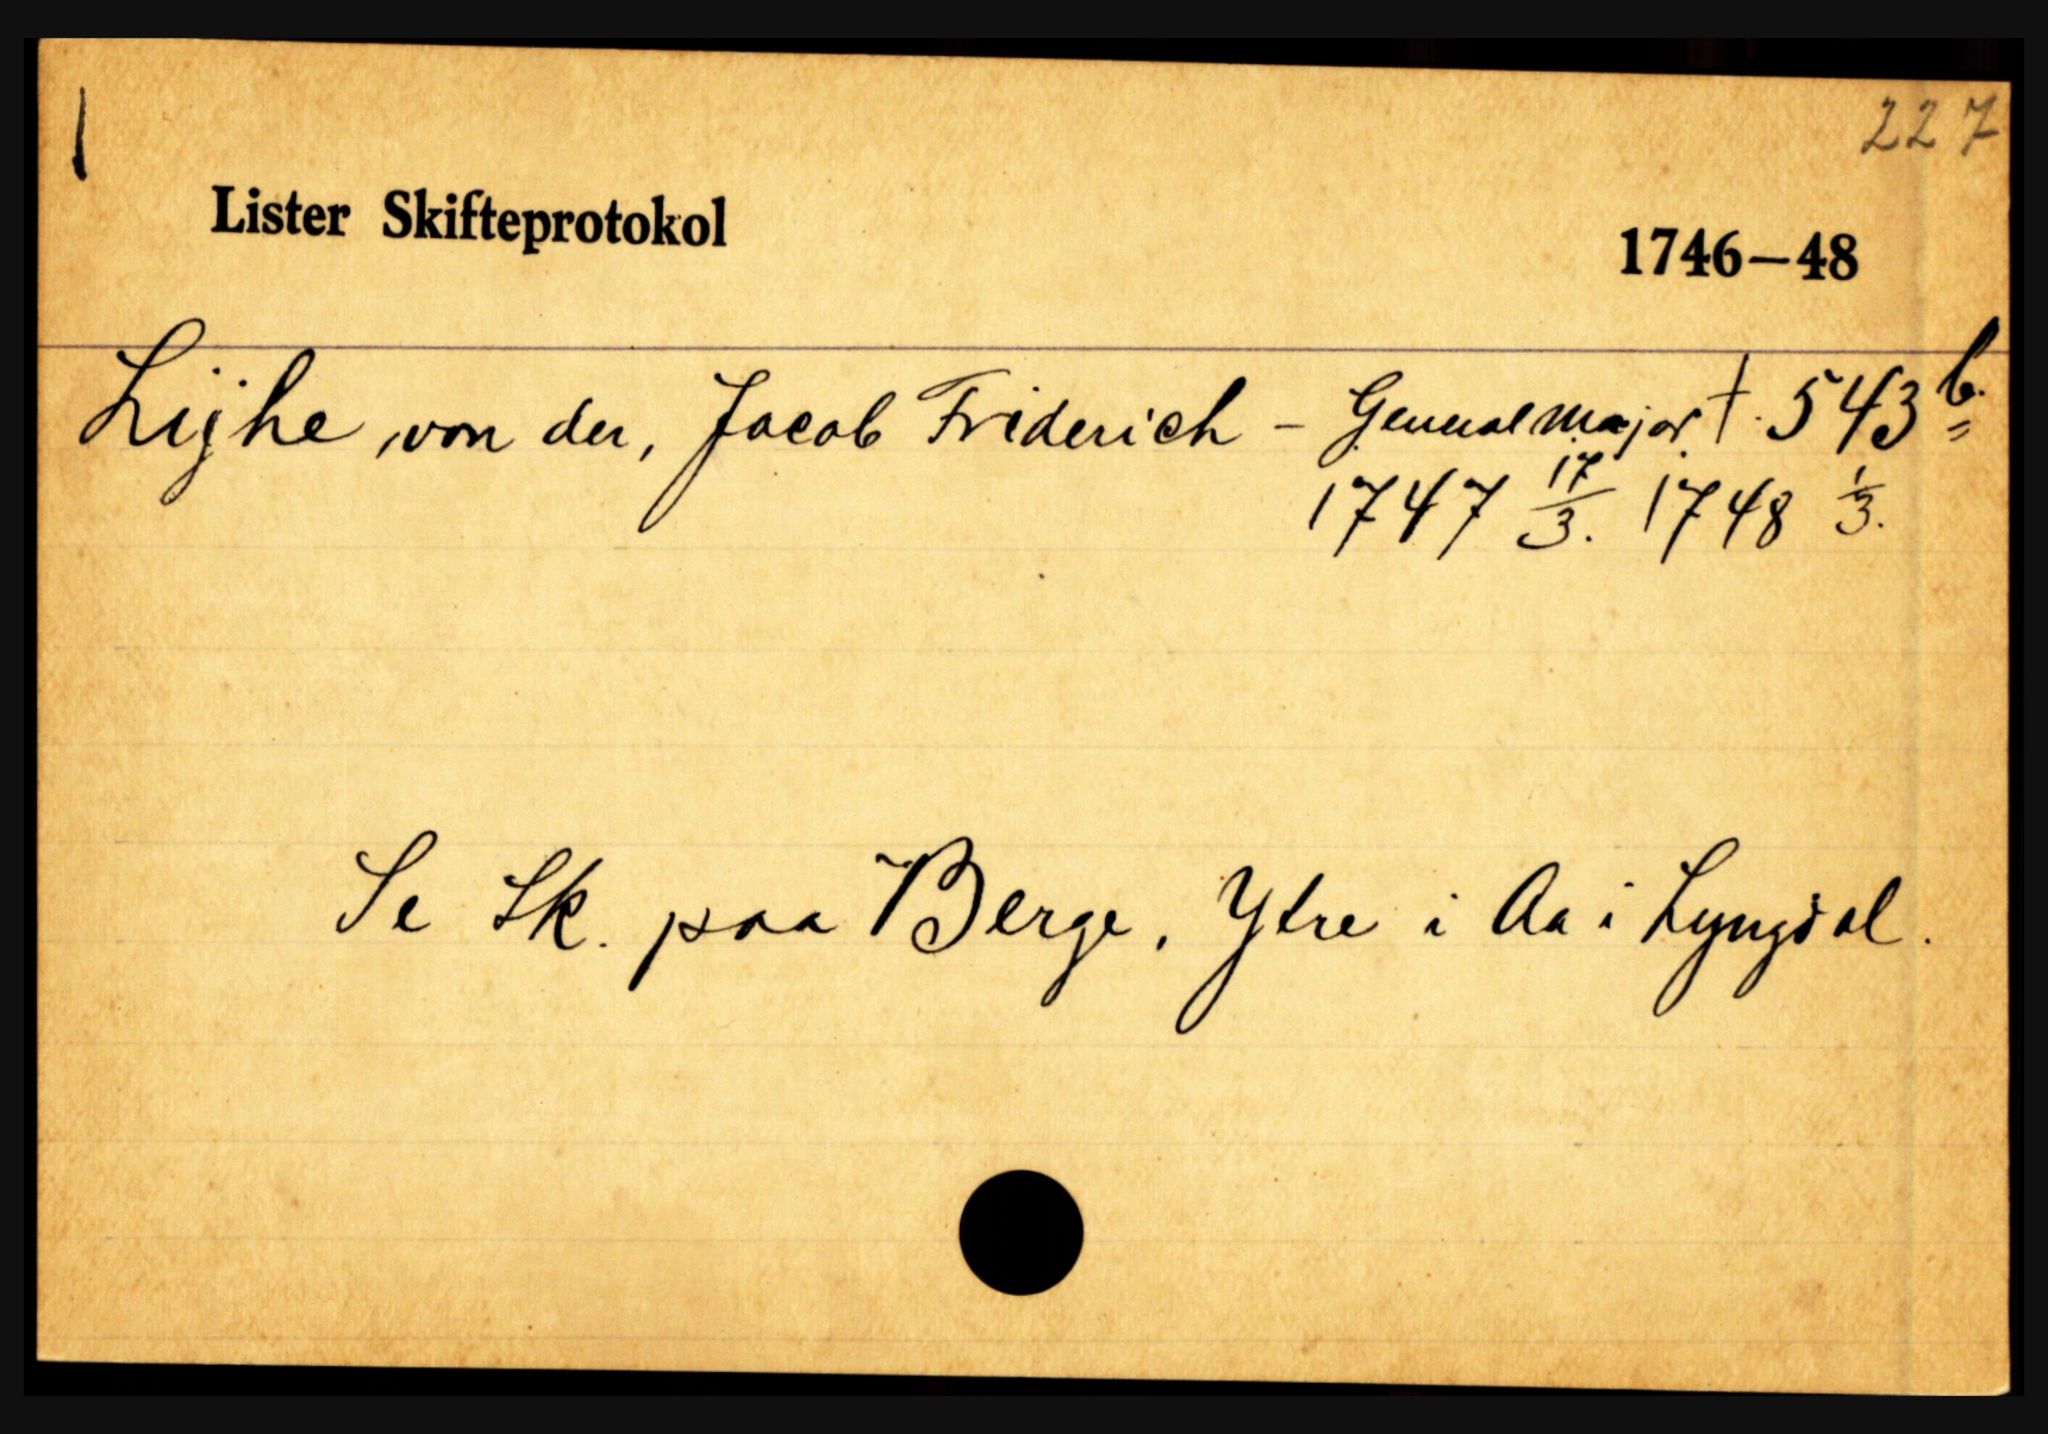 1
227
Lister Skifteprotokol 1746–48
Lijhe, von der, Jacob Friderich – Generalmajor † 543 b.
1747 17/3. 1748 1/3.
Se Sk. paa Berge, Ytre i Aa i Lyngdal.